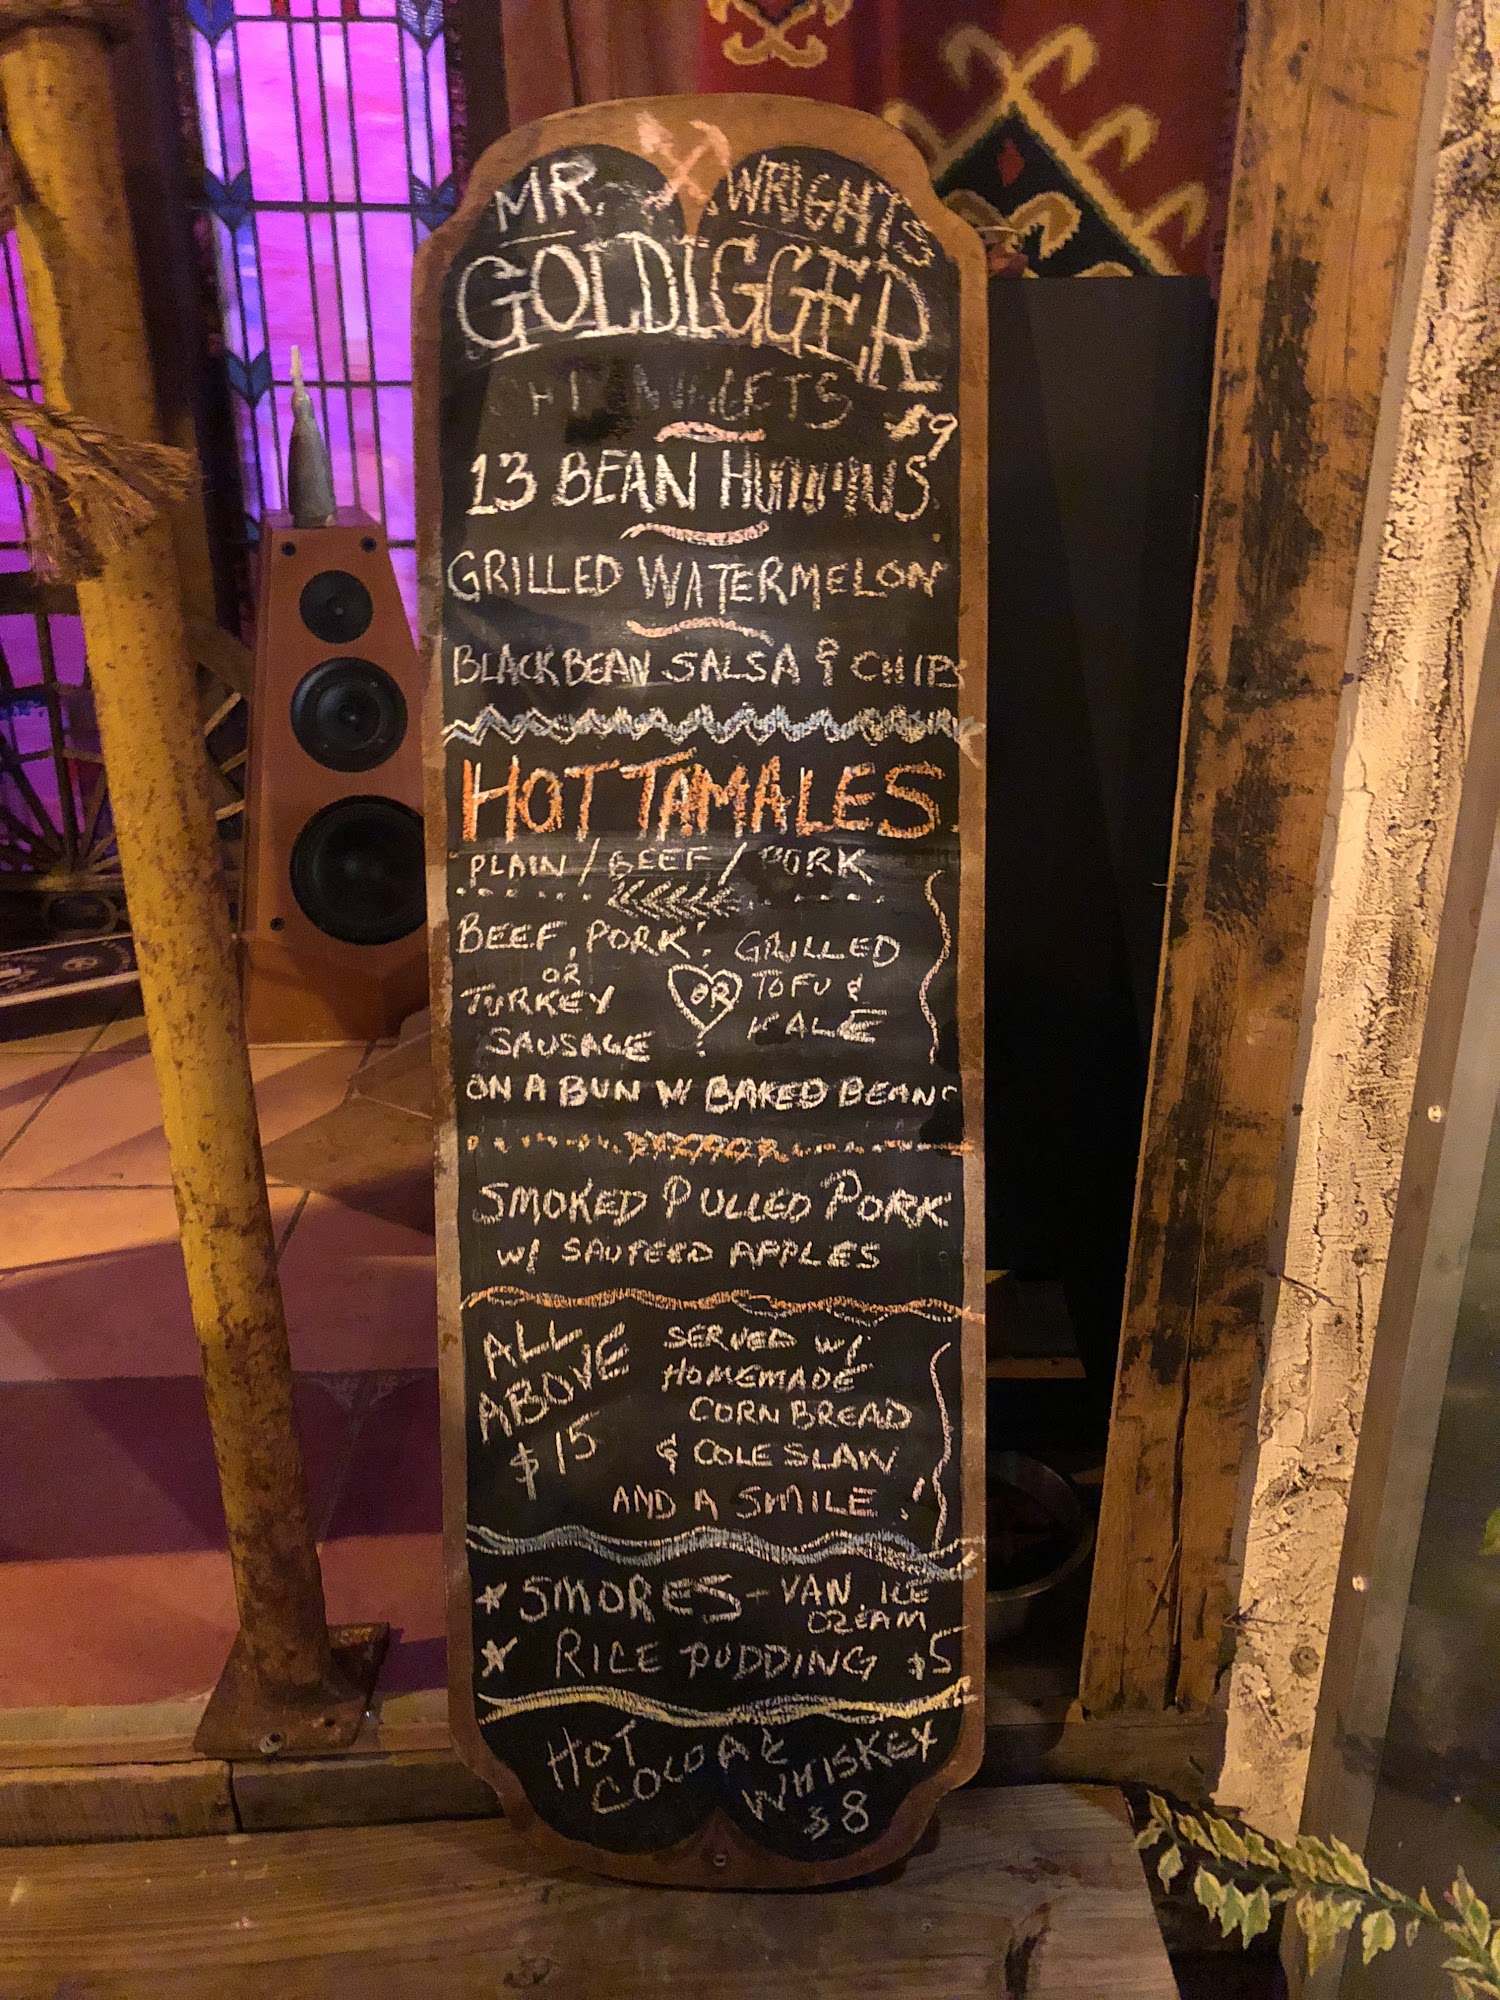 MR. WRIGHTS
GOLDIGGER
$9
13 BEAN HUMMUS
GRILLED WATERMELON
BLACK BEAN SALSA & CHIPS
HOT TAMALES
PLAIN / BEEF / PORK
BEEF, PORK
OR
TURKEY
SAUSAGE
OR
GRILLED
TOFU &
KALE
ON A BUN W BAKED BEANS
SMOKED PULLED PORK
W/ SAUTEED APPLES
ALL
ABOVE
$15
SERVED W/
HOMEMADE
CORN BREAD
& COLE SLAW
AND A SMILE!
SMORES - VAN. ICE
CREAM
RICE PUDDING $5
HOT
COCOA &
WHISKEY
$8